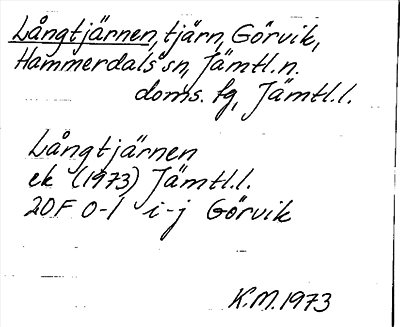 Långtjärnen, tjärn, Görvik,
Hammerdals sn, Jämtl.n.
doms. fg, Jämtl.l.
Långtjärnen
ek (1973) Jämtl.l.
20F 0-1 i-j Görvik
K.M. 1973